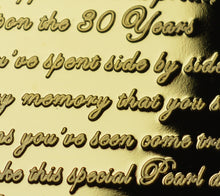 upon the 30 Years
you've spent side by side
memory that you
as you've seen come true
this special Pearl